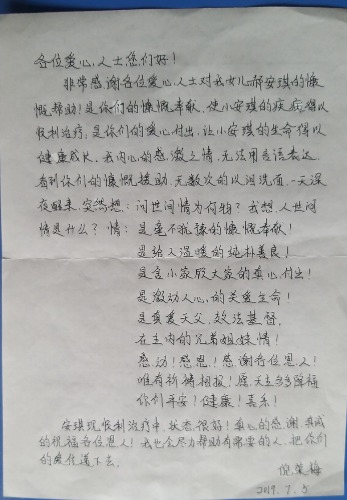 各位爱心人士您们好！
非常感谢各位爱心人士对我女儿郝安琪的慷
慨帮助！是你们的慷慨奉献，使小安琪的疾病得以
顺利治疗，是你们的爱心付出，让小安琪的生命得以
健康成长，我内心的感激之情，无法用言语表达，
看到你们的慷慨援助，无数次的以泪洗面，一天深
夜醒来，突然想：问世间情为何物？我想，人世间
情是什么？情：是毫不犹豫的慷慨奉献！
是给人温暖的纯朴善良！
是舍小家顾大家的真心付出！
是激动人心的关爱生命！
是真爱天父，效法基督，
在主内的兄弟姐妹情！
感动！感恩！感谢各位恩人！
唯有祈祷相报！愿天主多多降福
你们平安！健康！喜乐！
安琪现顺利治疗中，状态很好！衷心的感谢，真诚
的祝福各位恩人！我也会尽力帮助有需要的人，把你们
的爱传递下去。
倪荣梅
2019.7.5